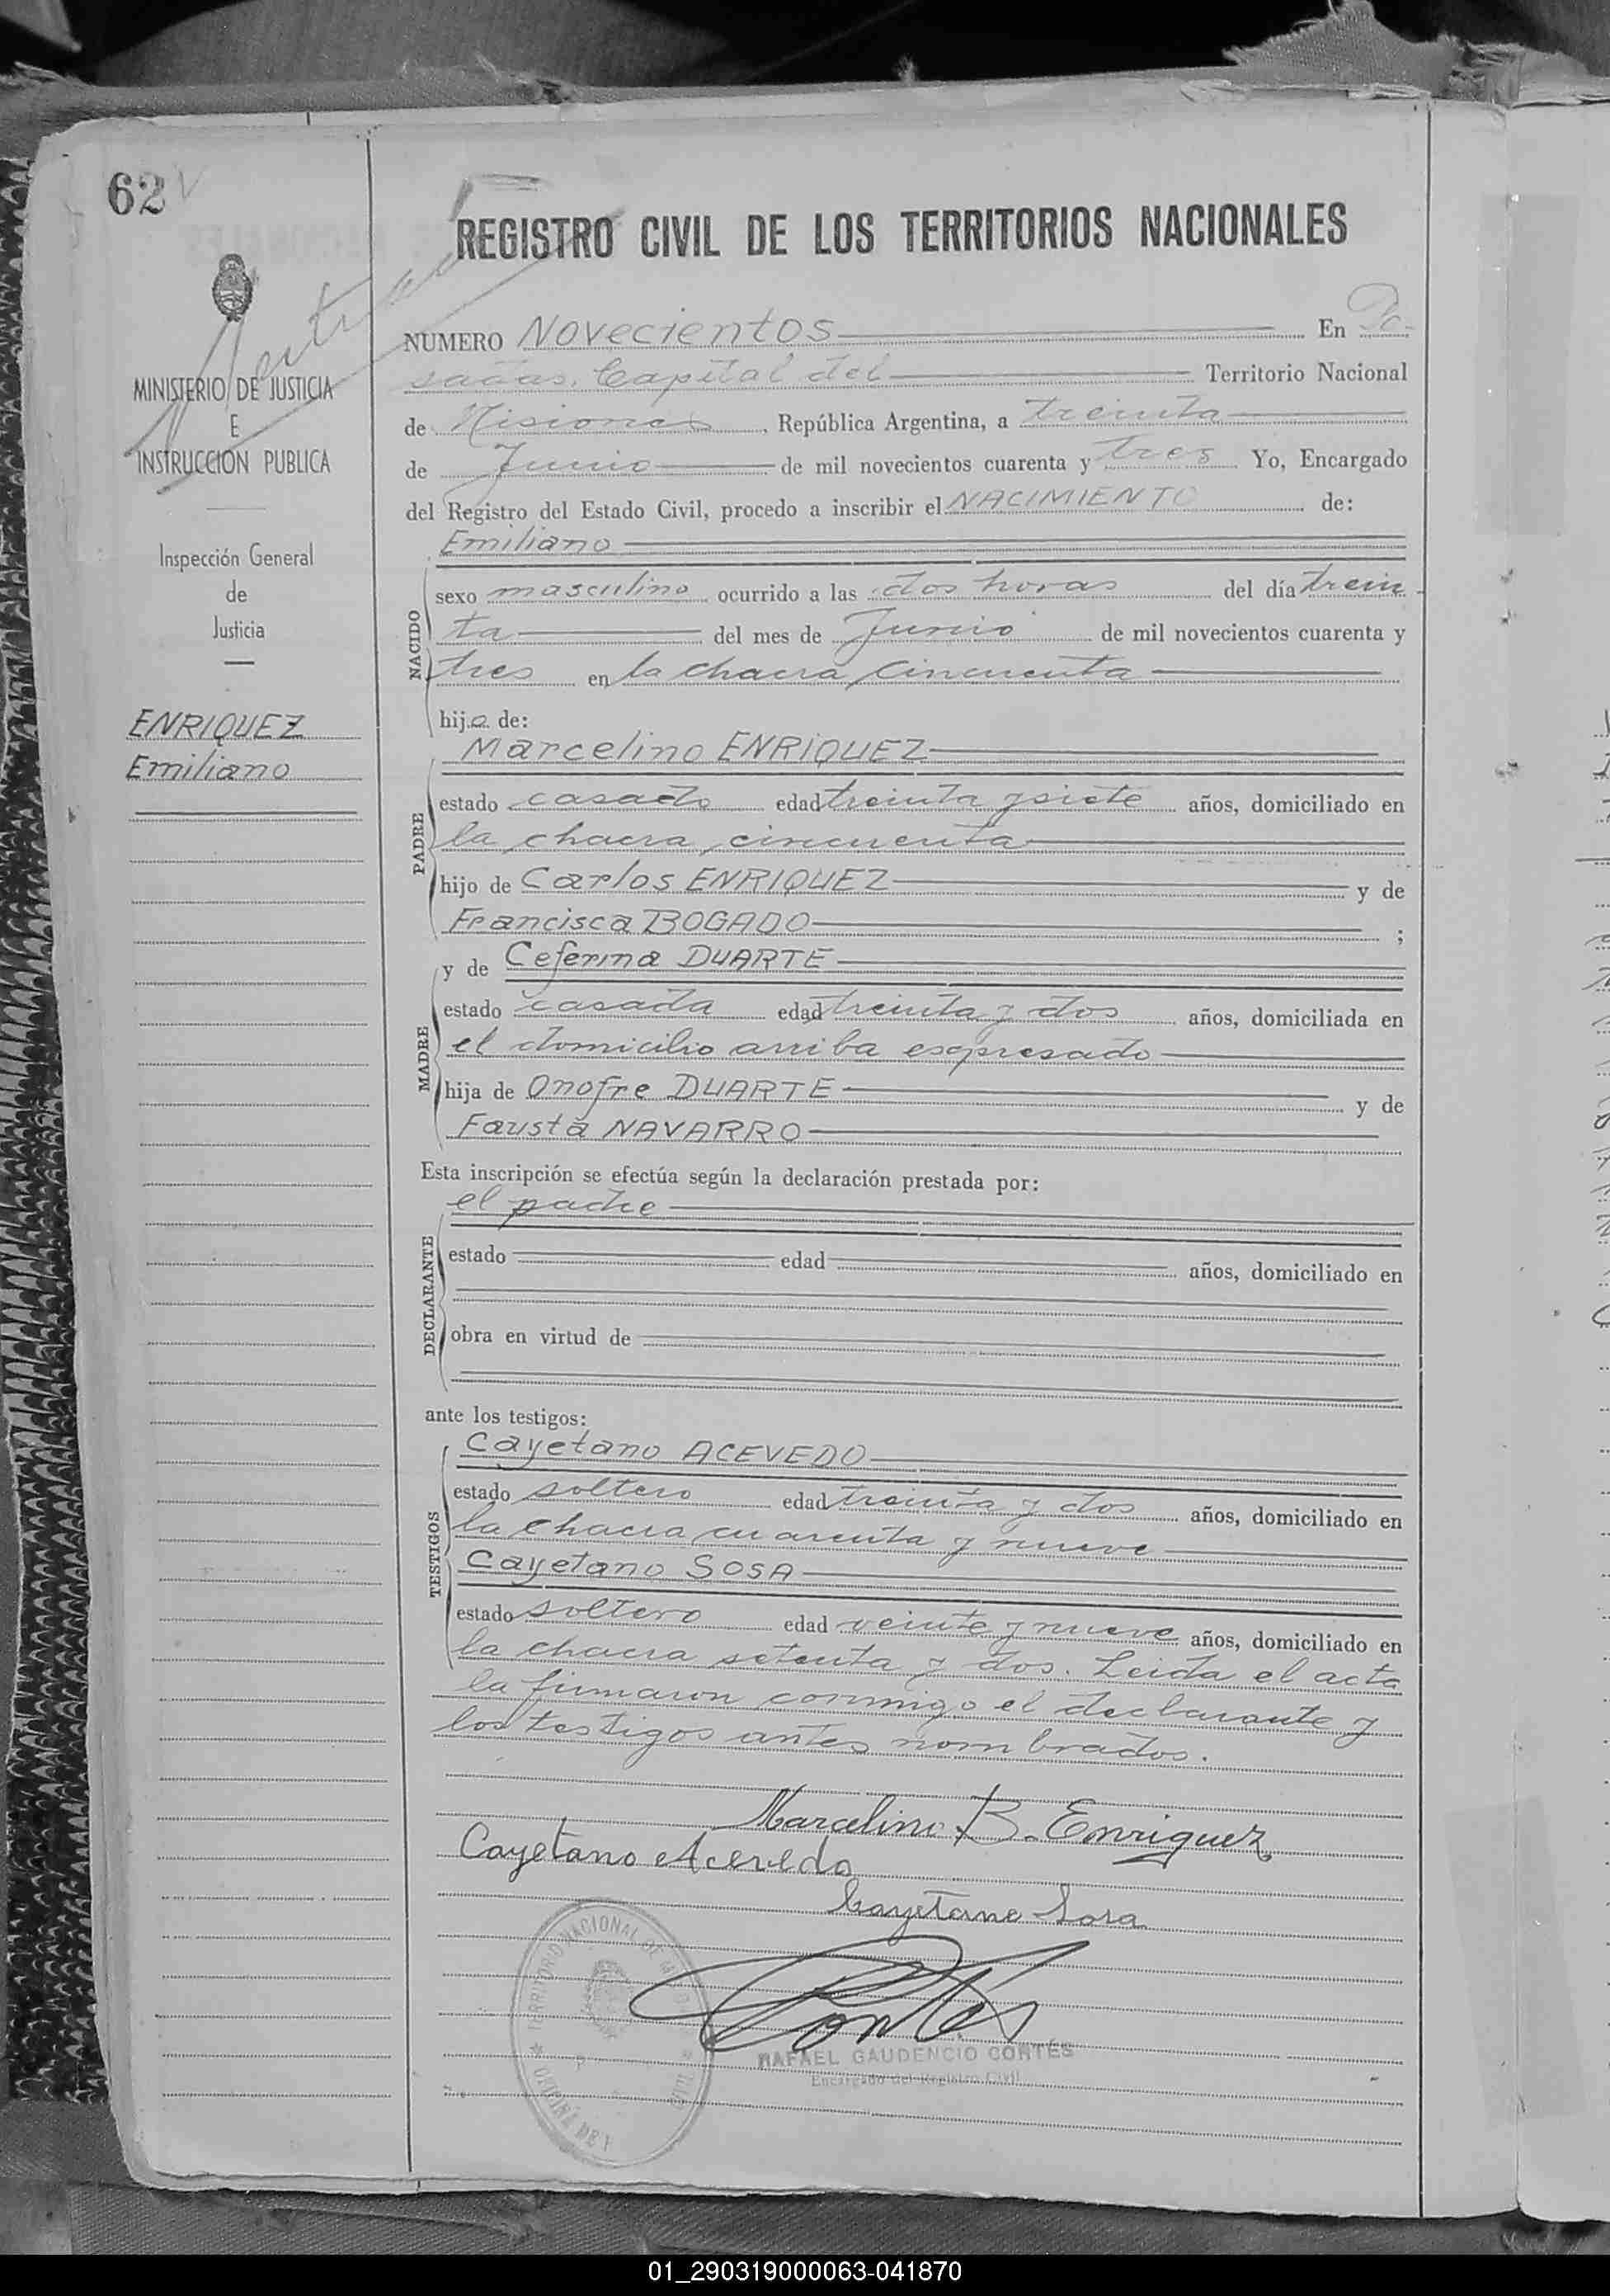 62
REGISTRO CIVIL DE LOS TERRITORIOS NACIONALES
MINISTERIO DE JUSTICIA
E
INSTRUCCION PUBLICA
Inspección General
de
Justicia
ENRIQUEZ
Emiliano
NUMERO Novecientos En Po-
sadas, Capital del Territorio Nacional
de Misiones, República Argentina, a treinta
de Junio de mil novecientos cuarenta y tres Yo, Encargado
del Registro del Estado Civil, procedo a inscribir el NACIMIENTO de:
Emiliano
NACIDO
sexo masculino ocurrido a las dos horas del día trein
ta del mes de Junio de mil novecientos cuarenta y
tres en la chacra cincuenta
hijo de:
Marcelino ENRIQUEZ
PADRE
estado casado edad treinta y siete años, domiciliado en
la chacra cincuenta
hijo de Carlos ENRIQUEZ y de
Francisca BOGADO ;
y de Ceferina DUARTE
MADRE
estado casada edad treinta y dos años, domiciliada en
el domicilio arriba espresado
hija de Onofre DUARTE y de
Fausta NAVARRO
Esta inscripción se efectúa según la declaración prestada por:
el padre
DECLARANTE
estado edad años, domiciliado en
obra en virtud de
ante los testigos:
Cayetano ACEVEDO
TESTIGOS
estado soltero edad treinta y dos años, domiciliado en
la chacra cuarenta y nueve
Cayetano SOSA
estado soltero edad veinte y nueve años, domiciliado en
la chacra setenta y dos. Leida el acta
la firmaron conmigo el declarante y
los testigos antes nombrados.
Marcelino B. Enriquez
Cayetano Acevedo
Cayetano Sosa
Cortés
TERRITORIO NACIONAL DE
OFICINA DE
RAFAEL GAUDENCIO CORTES
Encargado del Registro Civil
01_290319000063-041870